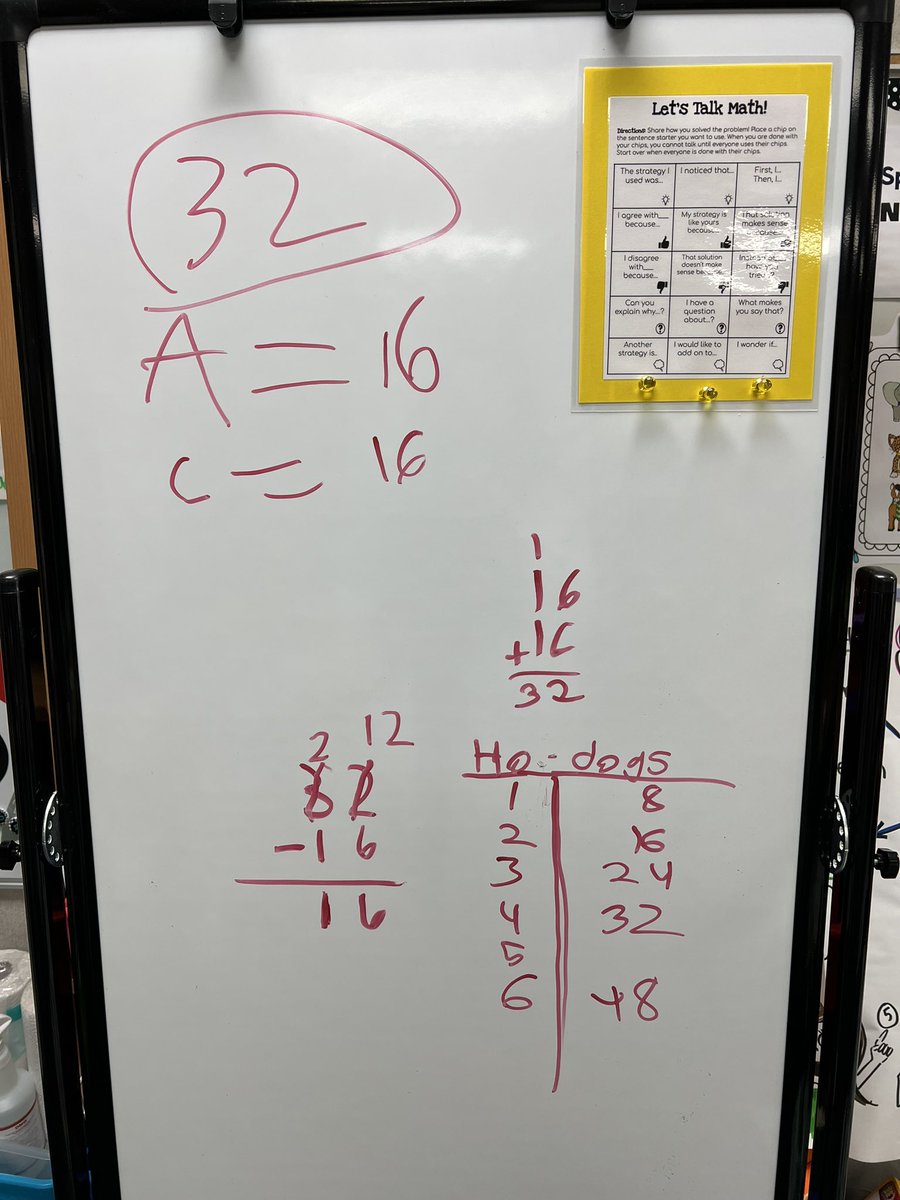 32
A = 16
c = 16
Let's Talk Math!
Directions: Share how you solved the problem! Place a chip on
the sentence starter you want to use. When you are done with
your chips, you cannot talk until everyone uses their chips.
Start over when everyone is done with their chips.
The strategy I
used was...
I noticed that...
First, I...
Then, I...
I agree with___
because...
My strategy is
like yours
because...
That solution
makes sense
because...
I disagree
with___
because...
That solution
doesn't make
sense because...
have you
tried
Can you
explain why...?
I have a
question
about...?
What makes
you say that?
Another
strategy is..
I would like to
add on to...
I wonder if...
1
16
+16
32
2 12
32
-16
16
Ho-dogs
1 8
2 16
3 24
4 32
5
6 48
Sp
N
5